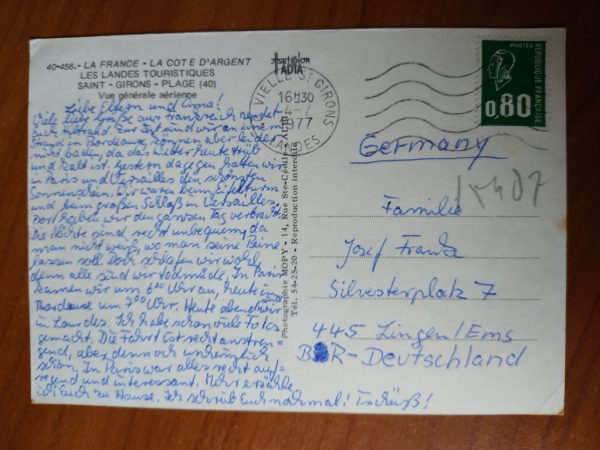 40-456.- LA FRANCE - LA COTE D'ARGENT
LES LANDES TOURISTIQUES
SAINT - GIRONS - PLAGE (40)
Vue générale aérienne
Liebe Eltern und Oma!
Viele liebe Grüße aus Frankreich sendet
Euch Hiltrud. Zur Zeit sind wir an einem
Strand in Bordeaux, können aber leider
nicht baden, da das Wetter heute trüb
und kalt ist. Gestern dagegen hatten wir
in Paris und Versailles den schönsten
Sonnenschein. Wir waren beim Eiffelturm
und beim großen Schloß in Versailles.
Dort haben wir den ganzen Tag verbracht.
Die Nächte sind recht unbequem, da
man nicht weiß, wo man seine Beine
lassen soll. Doch schlafen wir wohl,
denn alle sind wir todmüde. In Paris
kamen wir um 6⁰⁰ Uhr an, heute in
Bordeaux um 3⁰⁰ Uhr. Heute abend sind wir
in Lourdes. Ich habe schon viele Fotos
gemacht. Die Fahrt ist recht anstren-
gend, aber dennoch unheimlich
schön. In Paris war alles recht auf-
regend und interessant. Mehr erzähle
ich Euch zu Hause. Ich schreib Euch nochmal! Tschüß!
Photographie MOPY - 14, Rue Ste-Cécile -
Tél. 54-25-20 - Reproduction interdite
VIELLE ST GIRONS
16H30
4-7
1977
LANDES
POSTES
REPUBLIQUE FRANÇAISE
0,80
Germany
Familie
Josef Frank
Silvesterplatz 7
445 Lingen/Ems
BR-Deutschland